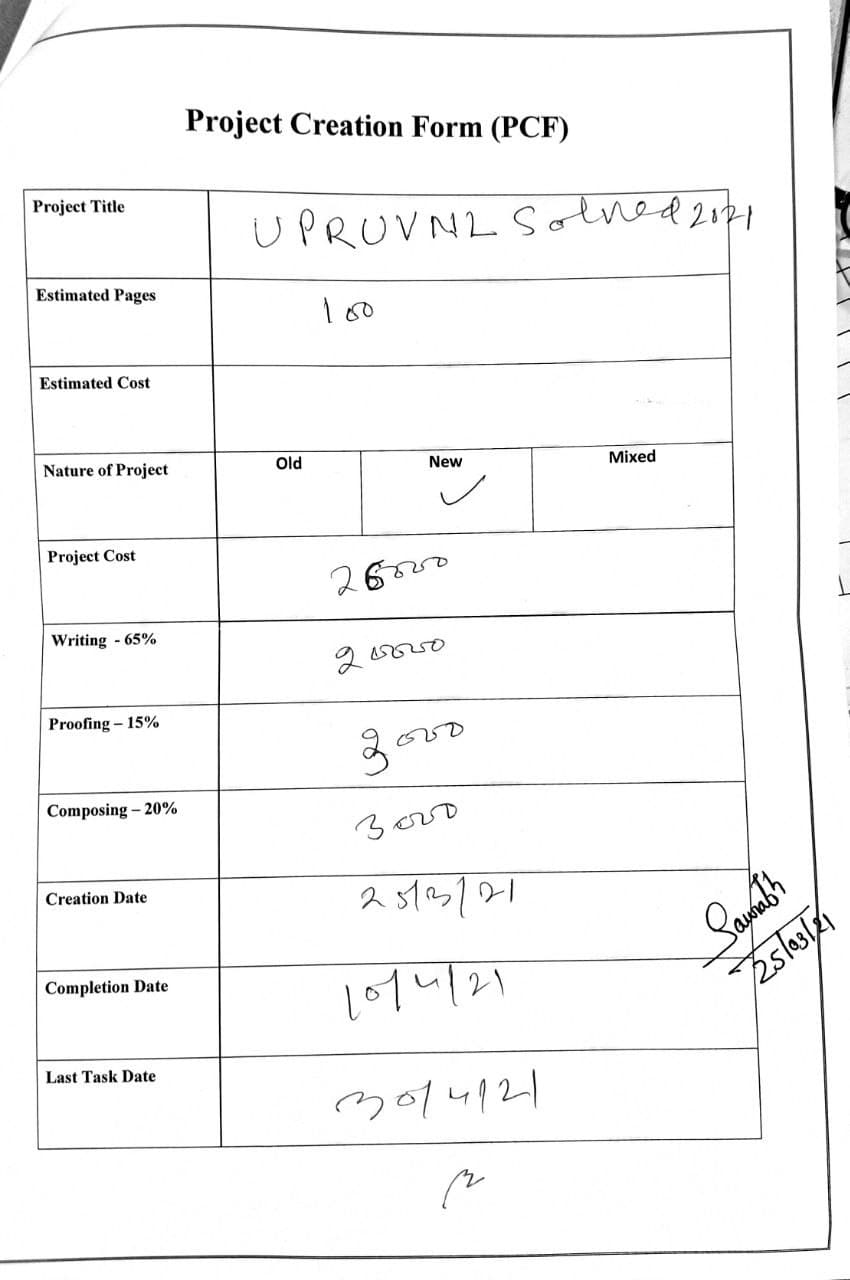 Project Creation Form (PCF)
Project Title UPRUVNL Solved 2021
Estimated Pages 100
Estimated Cost
Nature of Project Old New Mixed
Project Cost 26000
Writing - 65% 20000
Proofing – 15% 3000
Composing – 20% 3000
Creation Date 25/3/21
Saurabh
25/03/21
Completion Date 10/4/21
Last Task Date 30/4/21